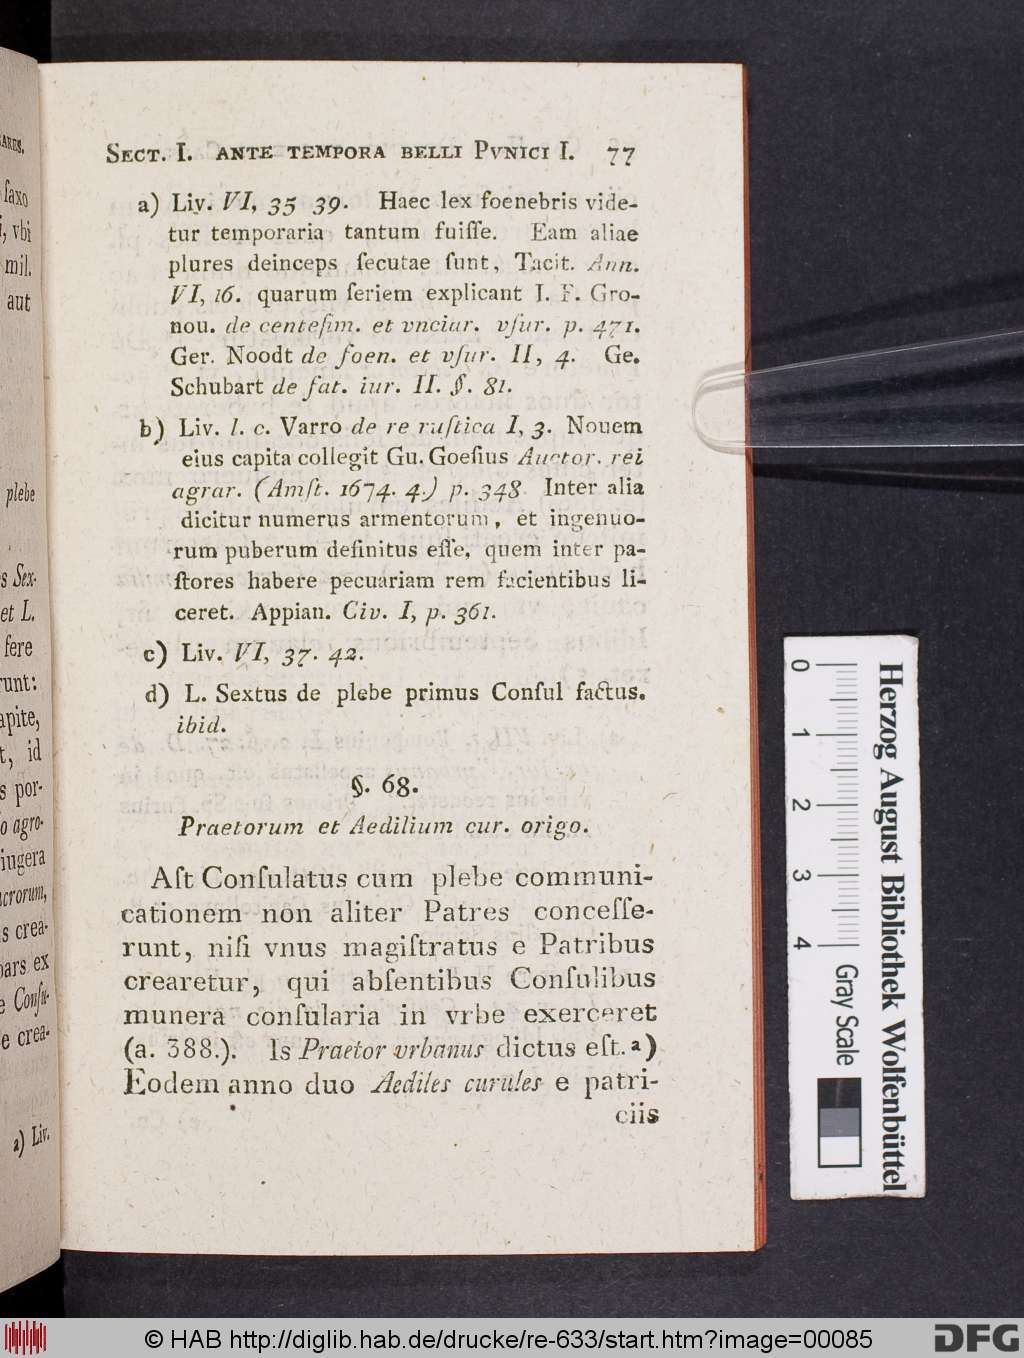 SECT. I. ANTE TEMPORA BELLI PVNICI I. 77
a) Liv. VI, 35 39. Haec lex foenebris vide-
tur temporaria tantum fuiſſe. Eam aliae
plures deinceps ſecutae ſunt, Tacit. Ann.
VI, 16. quarum ſeriem explicant I. F. Gro-
nou. de centeſim. et vnciar. vſur. p. 471.
Ger. Noodt de foen. et vſur. II, 4. Ge.
Schubart de fat. iur. II. §. 81.
b) Liv. l. c. Varro de re ruſtica I, 3. Nouem
eius capita collegit Gu. Goeſius Auctor. rei
agrar. (Amſt. 1674. 4.) p. 348 Inter alia
dicitur numerus armentorum, et ingenuo-
rum puberum definitus eſſe, quem inter pa-
ſtores habere pecuariam rem facientibus li-
ceret. Appian. Civ. I, p. 361.
c) Liv. VI, 37. 42.
d) L. Sextus de plebe primus Conſul factus.
ibid.
§. 68.
Praetorum et Aedilium cur. origo.
Aſt Conſulatus cum plebe communi-
cationem non aliter Patres conceſſe-
runt, niſi vnus magiſtratus e Patribus
crearetur, qui abſentibus Conſulibus
munera conſularia in vrbe exerceret
(a. 388.). Is Praetor vrbanus dictus eſt. a)
Eodem anno duo Aediles curules e patri-
ciis
ARES.
ſaxo
vbi
mil.
aut
plebe
s Sex-
et L.
fere
runt:
apite,
t, id
s por-
o agro-
iugera
acrorum,
s crea-
pars ex
e Conſu-
e crea-
a) Liv.
0 1 2 3 4
Gray Scale
Herzog August Bibliothek Wolfenbüttel
© HAB http://diglib.hab.de/drucke/re-633/start.htm?image=00085
DFG